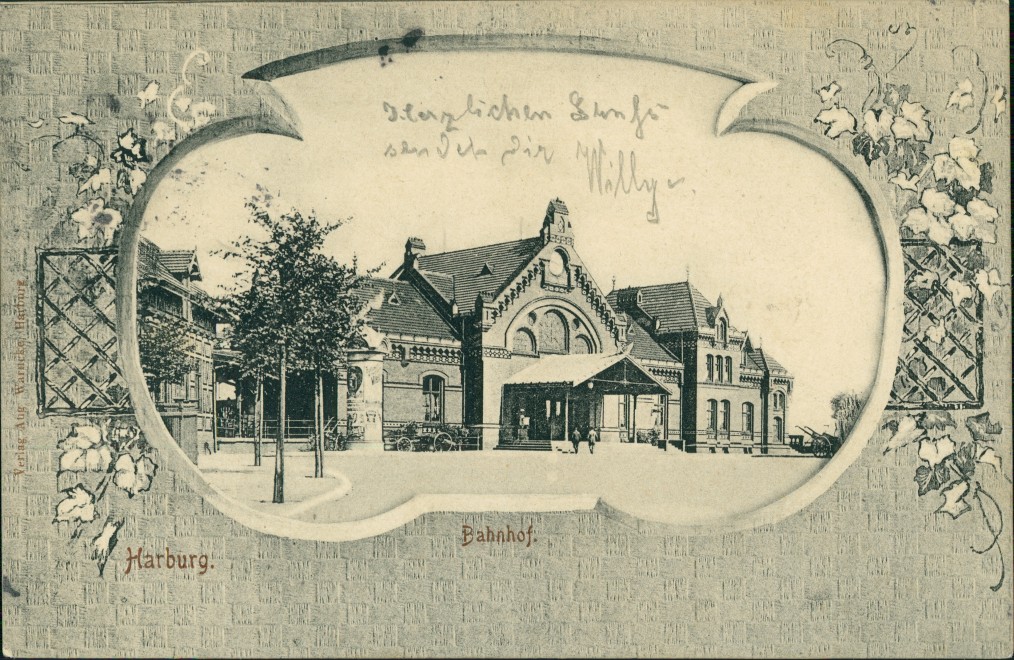 Herzlichen Gruß
sendet dir Willy
Bahnhof.
Harburg.
Verlag Aug. Warncke, Harburg